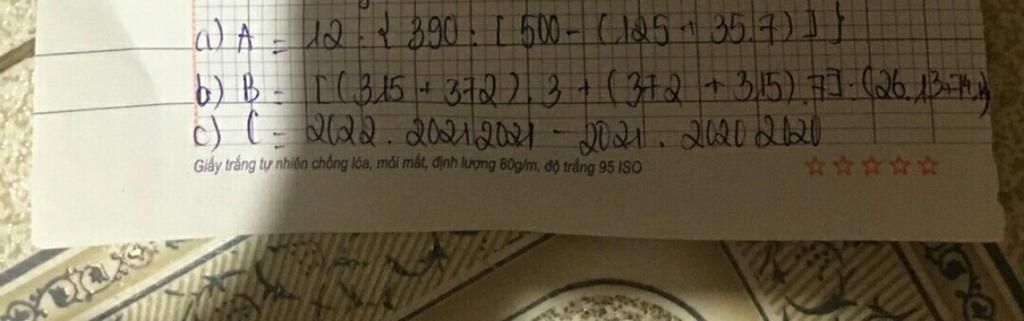 a) A = 12 : { 390 : [ 500 - ( 125 + 35.7 ) ] }
b) B = [ ( 315 + 372 ) . 3 + ( 372 + 315 ) . 7 ] : ( 26 . 13 + 74 .
c) C = 2022 . 20212021 - 2021 . 20202020
Giấy trắng tự nhiên chống lóa, mỏi mắt, định lượng 80g/m, độ trắng 95 ISO